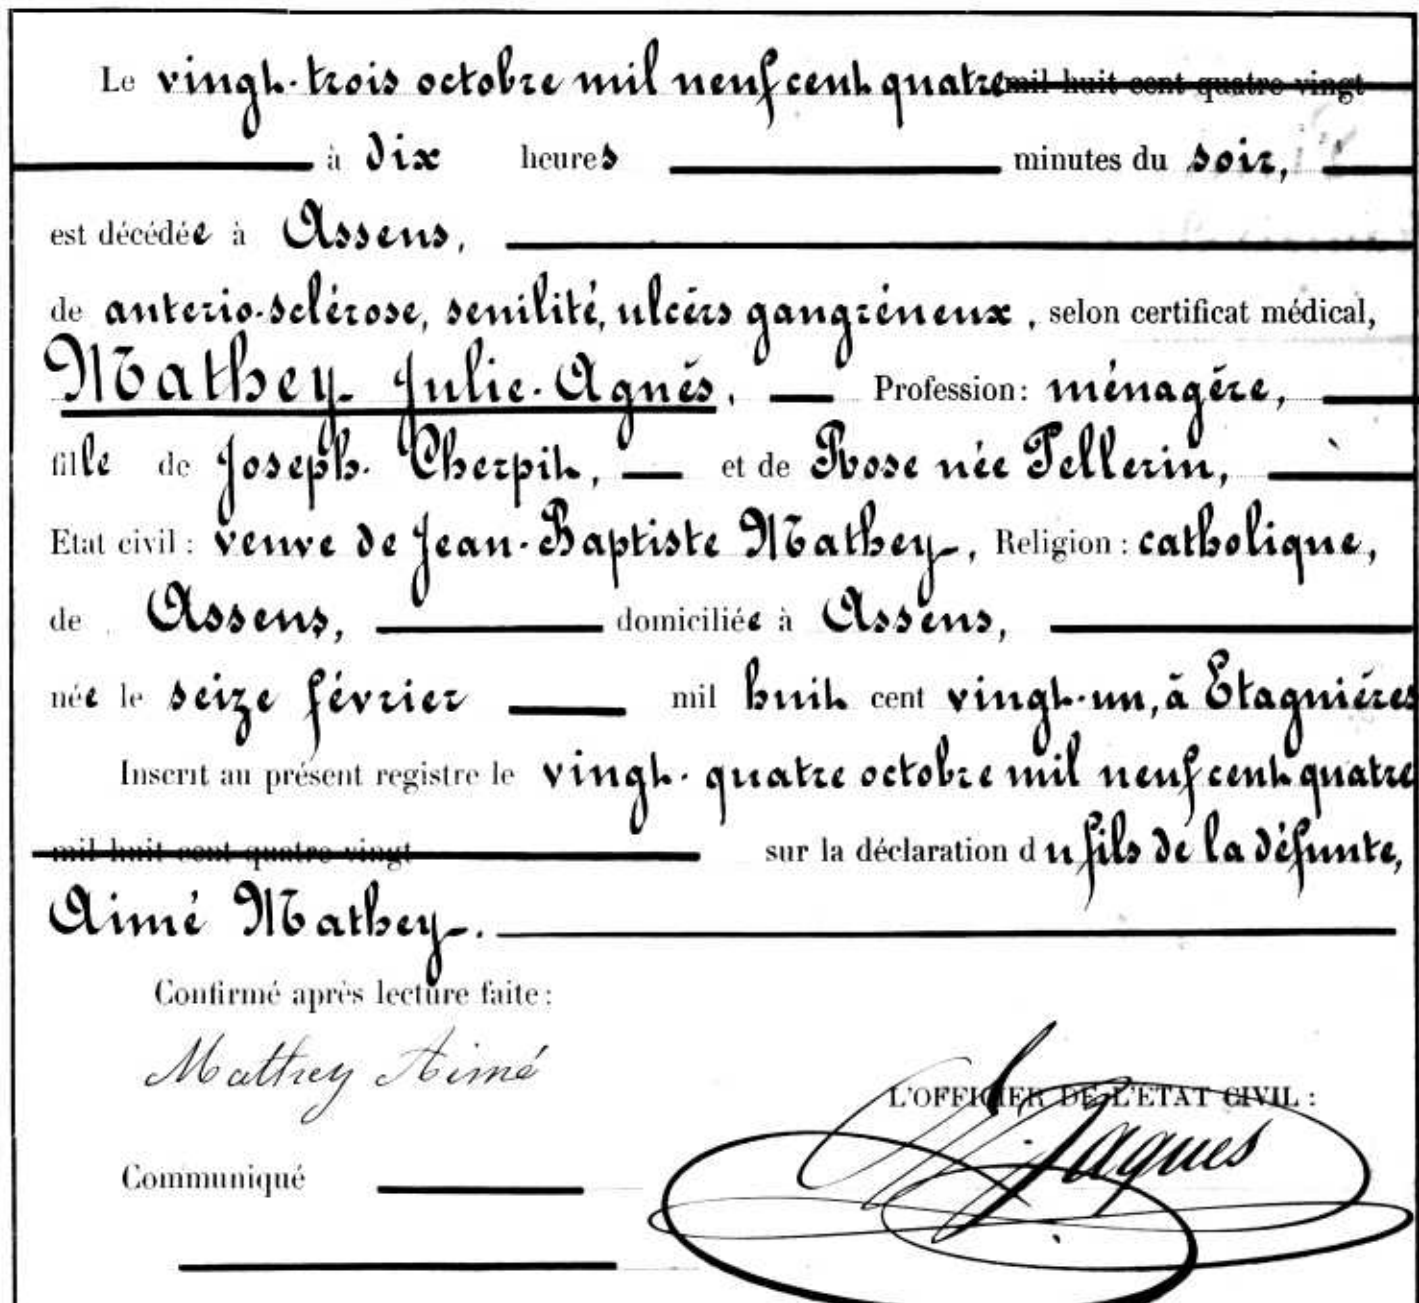 Le vingt-trois octobre mil neuf cent quatre mil huit cent quatre vingt
à dix heures minutes du soir,
est décédée à Assens,
de anterio-sclérose, senilité, ulcérs gangréneux, selon certificat médical,
Mathey Julie-Agnès, Profession: ménagère,
fille de Joseph Cherpit, et de Rose née Pellerin,
Etat civil: veuve de Jean-Baptiste Mathey, Religion: catholique,
de Assens, domiciliée à Assens,
née le seize février mil huit cent vingt-un, à Etagnières
Inscrit au présent registre le vingt-quatre octobre mil neuf cent quatre
mil huit cent quatre vingt sur la déclaration du fils de la défunte,
Aimé Mathey.
Confirmé après lecture faite:
Mathey Aimé
L'OFFICIER DE L'ETAT CIVIL:
Jaques
Communiqué